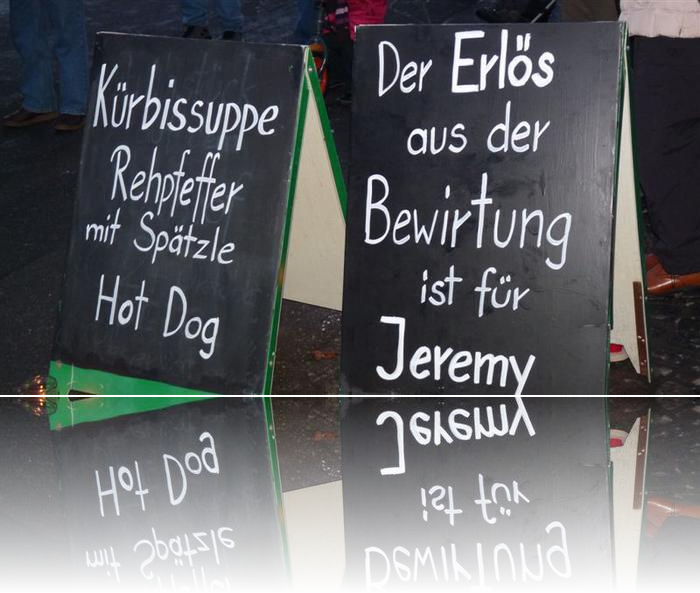 Kürbissuppe
Rehpfeffer
mit Spätzle
Hot Dog
Der Erlös
aus der
Bewirtung
ist für
Jeremy